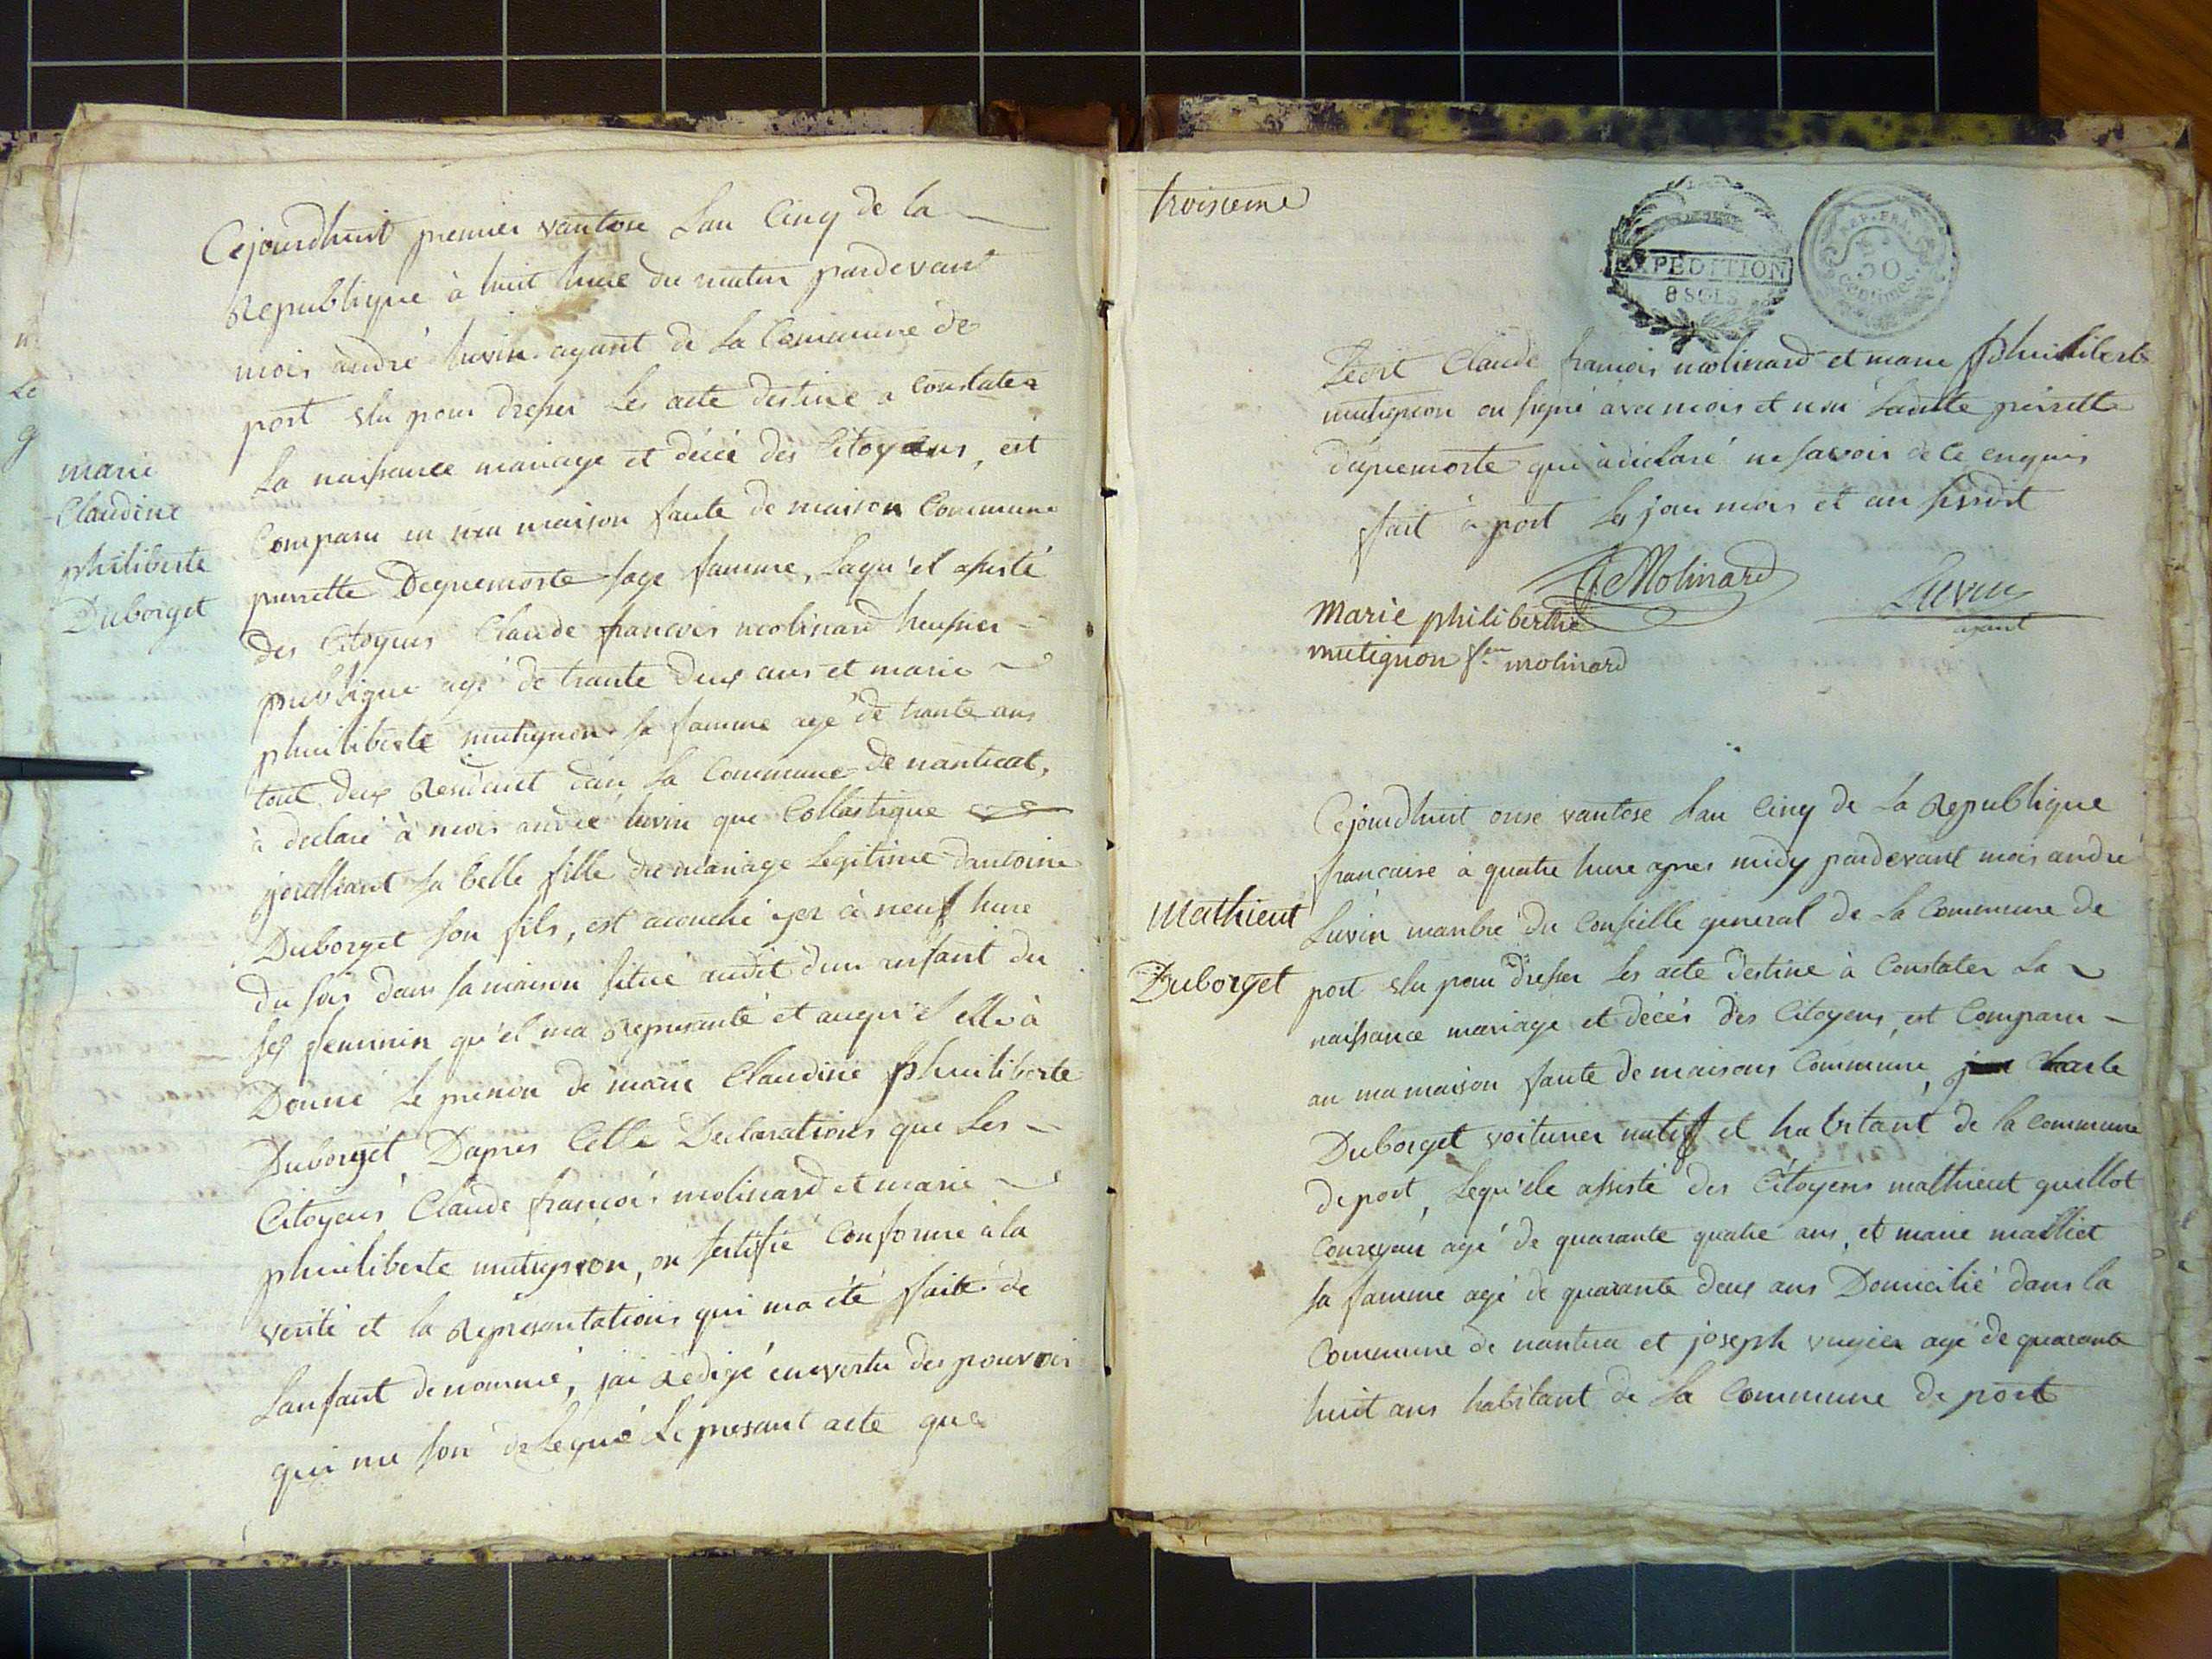 Cejourdhuit premier vantose Lan Cinq de la
Republique à huit hure du matin pardevant
mois andré Luvin agant de La Commune de
port elu pour dresser Les acte destine a Constater
La naissance mariage et décé des Citoyens, est
Comparu en ma maison faute de maison Commune
pierrette Depremorte sage famme, Laqu'el assisté
des Citoyens Claude francois molinard heussier
publique agé de trante deux ans et marie
philiberte mutignon sa famme agé de trante ans
tout deux Residant dan La Commune de nantuat,
à declaré à mois andré luvin que Collastique
jouilliant sa belle fille du mariage Legitime dantoine
Duborget son fils, est acouché yer à neuf hure
du soir dans sa maison situé audit dun anfant du
sex feminin qu'el ma Represanté et auqu'el elle à
Donné Le prenon de marie Claudine philiberte
Duborget, Dapres Cette Declarations que Les
Citoyens Claude francois molinard et marie
philiberte mutignon, on sertifié Conforme à la
verité et la Represantations qui ma été faite de
Lanfant denommé, jai Redigé en vertu des pouvoir
qui me son delegué Le presant acte que
marie
Claudine
philiberte
Duborget
troisieme
EXPEDITION
8 SOLS
REP. FRA.
50
centimes
Ledit Claude francois molinard et marie philiberte
mutignon on signé avec mois et non Ladite pierrette
depremorte qui à declaré ne savoir de ce enquis
fait à port Les jour mois et an susdit
Molinard
Luvin
agant
Marie philiberthe
mutignon fem molinard
Cejourdhuit onse vantose Lan Cinq de La Republique
francaise à quatre hure apres midy pardevant mois andré
Luvin manbre du Conseille general de La Commune de
port elu pour dresser Les acte destine à Constater La
naissance mariage et décés des Citoyens, est Comparu
an ma maison faute de maisons Commune, Charle
Duborget voiturier natif et habitant de la Commune
de port, Lequ'ele assisté des Citoyens mathieut guillot
Coureyau agé de quarante quatre ans, et marie mailliet
sa famme agé de quarante deux ans Domicilié dans la
Commune de nantua et joseph vuyier agé de quarante
huit ans habitant de La Commune de port
Mathieut
Duborget